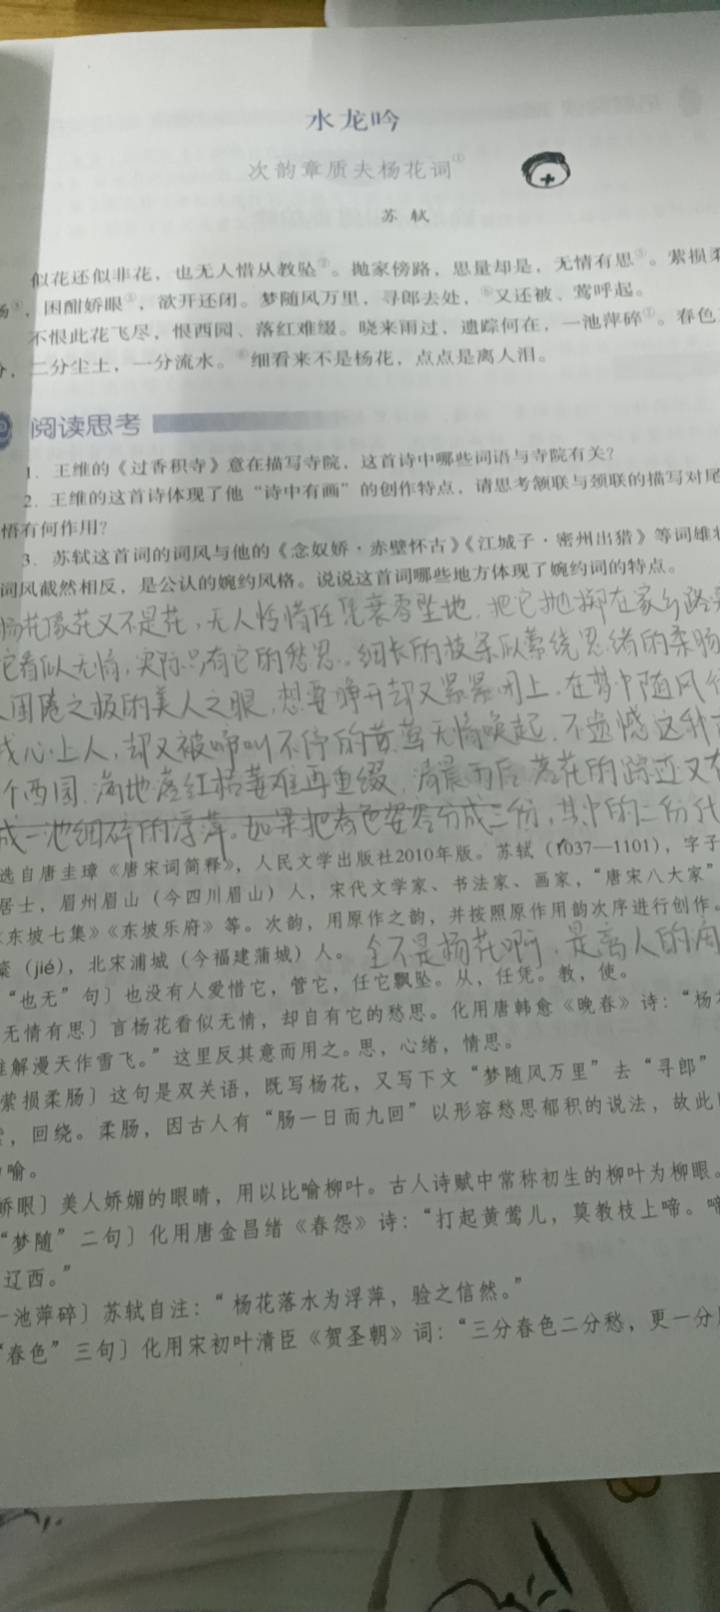 水龙吟
次韵章质夫杨花词①
苏轼
似花还似非花，也无人惜从教坠②。抛家傍路，思量却是，无情有思③。萦损柔
④，困酣娇眼⑤，欲开还闭。梦随风万里，寻郎去处，⑥又还被、莺呼起。
不恨此花飞尽，恨西园、落红难缀。晓来雨过，遗踪何在，一池萍碎⑦。春色
，二分尘土，一分流水。⑧细看来不是杨花，点点是离人泪。
阅读思考
1．王维的《过香积寺》意在描写寺院，这首诗中哪些词语与寺院有关？
2．王维的这首诗体现了他“诗中有画”的创作特点，请思考颔联与颈联的描写对尾
悟有何作用？
3．苏轼这首词的词风与他的《念奴娇·赤壁怀古》《江城子·密州出猎》等词雄
词风截然相反，是公认的婉约风格。说说这首词哪些地方体现了婉约词的特点。
杨花像花又不是花，无人怜惜任凭衰零坠地，把它抛掷在家乡路
它看似无情，实际只有它的愁思。细长的枝条似萦绕思绪的柔肠
困倦之极的美人之眼，想要睁开却又紧紧闭上，在梦中随风
心上人，却又被啼叫不停的黄莺无情唤起，不遗憾这种
个西园，满地落红枯萎难再重缀，清晨雨后落花的踪迹又在
成一池细碎的浮萍。如果把春色姿容分成三份，其中的二份化
选自唐圭璋《唐宋词简释》，人民文学出版社2010年版。苏轼（1037—1101），字子
居士，眉州眉山（今四川眉山）人，宋代文学家、书法家、画家，“唐宋八大家”
《东坡七集》《东坡乐府》等。次韵，用原作之韵，并按照原作用韵次序进行创作。
楶（jié），北宋浦城（今福建蒲城）人。 全不是杨花啊，是离人的
“也无”句〕也没有人爱惜它，管它，任它飘坠。从，任凭。教，使。
无情有思〕言杨花看似无情，却自有它的愁思。化用唐韩愈《晚春》诗：“杨
难解漫天作雪飞。”这里反其意而用之。思，心绪，情思。
萦损柔肠〕这句是双关语，既写杨花，又写下文“梦随风万里”去“寻郎”
，回绕。柔肠，因古人有“肠一日而九回”以形容愁思郁积的说法，故此
喻。
娇眼〕美人娇媚的眼睛，用以比喻柳叶。古人诗赋中常称初生的柳叶为柳眼。
“梦随”二句〕化用唐金昌绪《春怨》诗：“打起黄莺儿，莫教枝上啼。啼
辽西。”
一池萍碎〕苏轼自注：“杨花落水为浮萍，验之信然。”
“春色”三句〕化用宋初叶清臣《贺圣朝》词：“三分春色二分愁，更一分